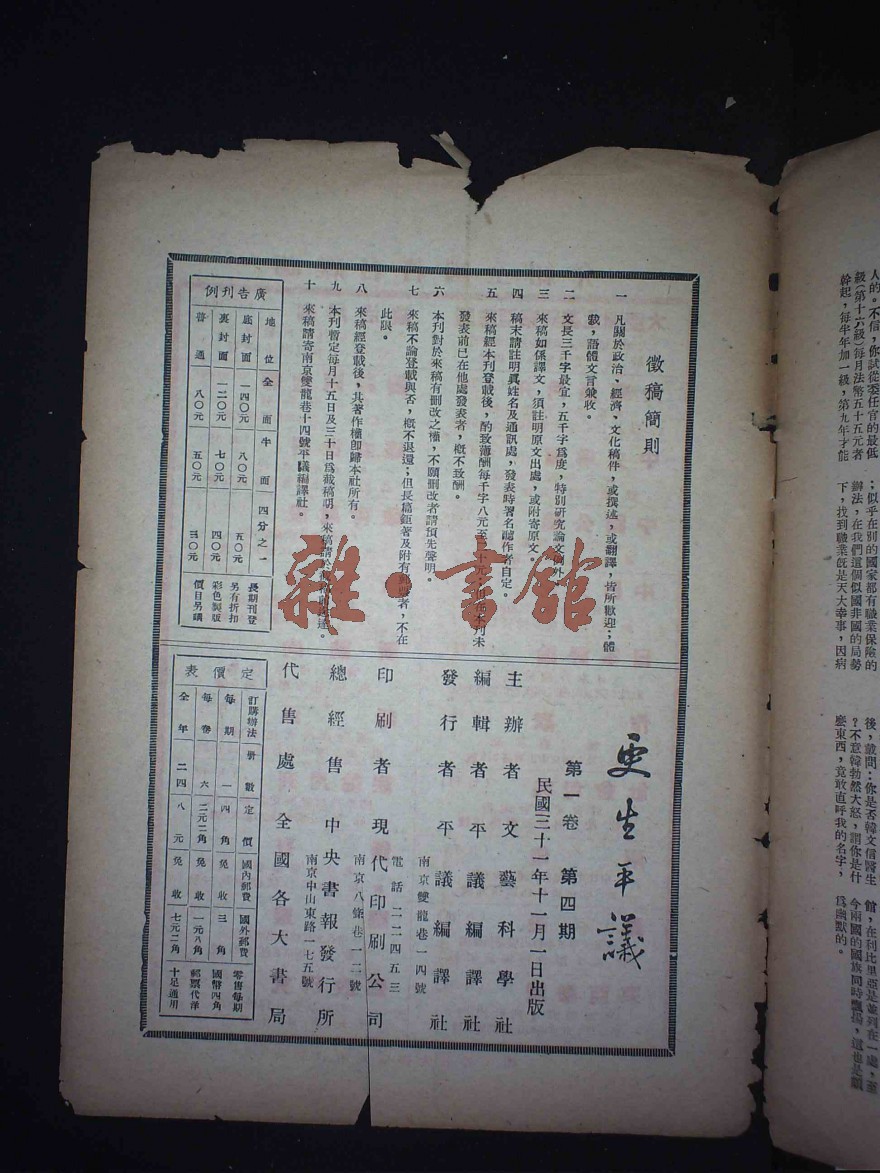 徵稿簡則
一 凡關於政治、經濟、文化稿件，或撰述，或翻譯，皆所歡迎；體
裁，語體文言兼收。
二 文長三千字最宜，五千字為度，特別研究論文例外。
三 來稿如係譯文，須註明原文出處，或附寄原文。
四 稿末請註明真姓名及通訊處，發表時署名聽作者自定。
五 來稿經本刊登載後，酌致薄酬每千字八元至
發表前已在他處發表者，概不致酬。
六 本刊對於來稿有刪改之權，不願刪改者請預先聲明。
七 來稿不論登載與否，概不退還；但長篇鉅著及附有
者，不在
此限。
八 來稿經登載後，其著作權即歸本社所有。
九 本刊暫定每月十五日及三十日為截稿期，來稿請於
十 來稿請寄南京雙龍巷十四號平議編譯社。
廣告刊例
地位 全面 半面 四分之一
底封面 一四〇元 八〇元 五〇元
裏封面 一二〇元 七〇元 四〇元
普通 八〇元 五〇元 三〇元
長期刊登
另有折扣
彩色製版
價目另議
更生平議
第一卷 第四期
民國三十一年十一月一日出版
主辦者 文藝科學社
編輯者 平議編譯社
發行者 平議編譯社
南京雙龍巷一四號
電話二二四五三
印刷者 現代印刷公司
南京八條巷一二號
總經售 中央書報發行所
南京中山東路一七五號
代售處 全國各大書局
定價表
訂購辦法 冊數 定價 國內郵費 國外郵費
每期 一 四角 免收 三角
每卷 六 二元二角 免收 一元八角
全年 二四 八元 免收 七元二角
零售每期
國幣四角
郵票代洋
十足通用
雜·書館
人的。不信，你試從委任官的最低
級（第十六級）每月法幣五十五元者
幹起，每半年加一級，第九年才能
；似乎在別的國家都有職業保險的
辦法，在我們這個似國非國的局勢
下，找到職業既是天大幸事，因病
後，載問：你是否韓文信醫生
？不意韓勃然大怒，謂你是什
麼東西，竟敢直呼我的名字，
館，在利比里亞是並列在一處，至
今兩國的國旗同時飄揚，這也是頗
為幽默的。